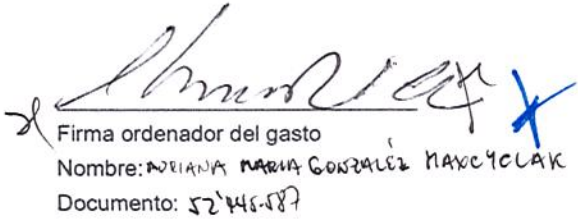 Firma ordenador del gasto
Nombre: ADRIANA MARIA GONZALEZ MAXCYCLAK
Documento: 52'445.587